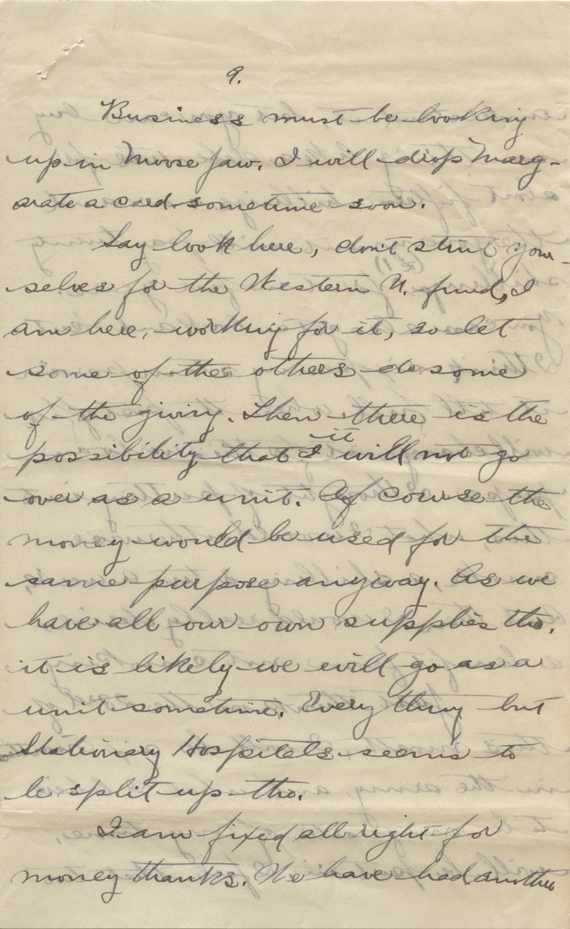 9.
Business must be looking
up in Moose Jaw. I will drop Marg-
arate a card sometime soon.
Say look here, don't stint your-
selves for the Western U. fund, I
am here, working for it, so let
some of the others do some
of the giving. Then there is the
possibility that it will not go
over as a unit. Of course the
money would be used for the
same purpose anyway. As we
have all our own supplies tho.
it is likely we will go as a
unit sometime. Everything but
Stationary Hospitals seems to
be split up tho.
I am fixed all right for
money thanks. We have had another